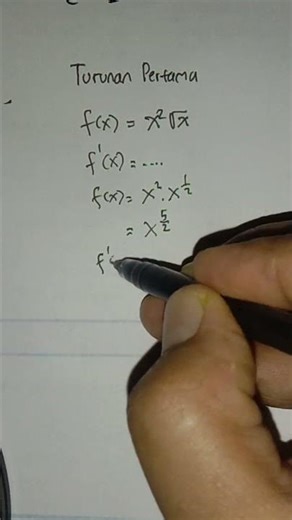 Turunan Pertama
f(x) = x²√x
f'(x) = ....
f(x) = x² . x^½
= x^5/2
f'